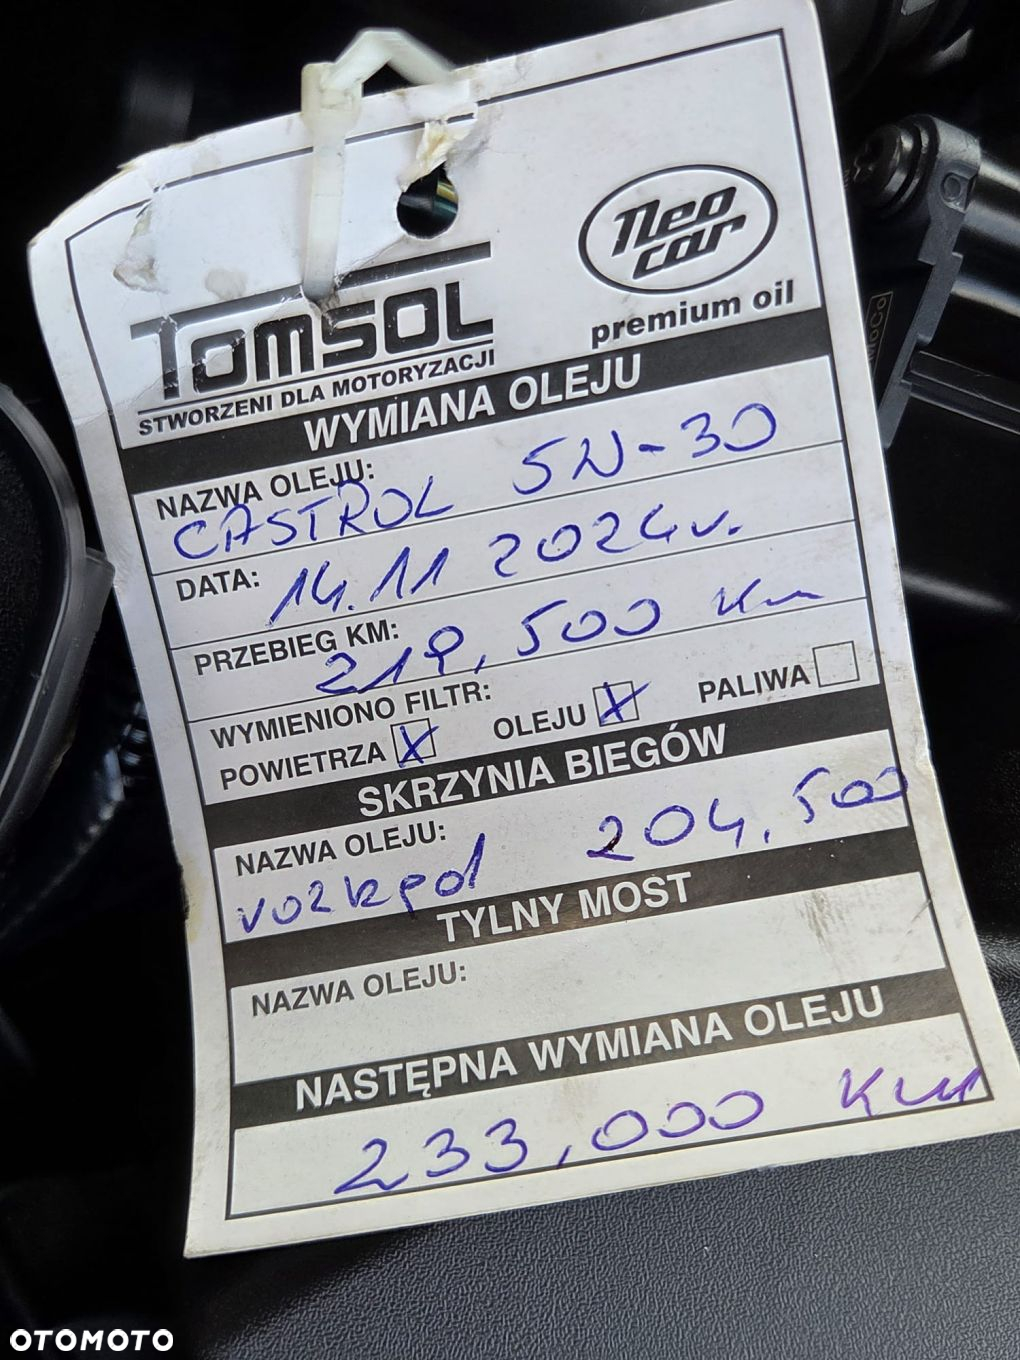 Neo
car
premium oil
TOMSOL
STWORZENI DLA MOTORYZACJI
WYMIANA OLEJU
NAZWA OLEJU:
CASTROL 5W-30
DATA:
14.11 2024r.
PRZEBIEG KM:
218,500 Km
WYMIENIONO FILTR:
POWIETRZA X OLEJU X PALIWA
SKRZYNIA BIEGÓW
NAZWA OLEJU:
rozrząd 204,500
TYLNY MOST
NAZWA OLEJU:
NASTĘPNA WYMIANA OLEJU
233,000 Km
OTOMOTO